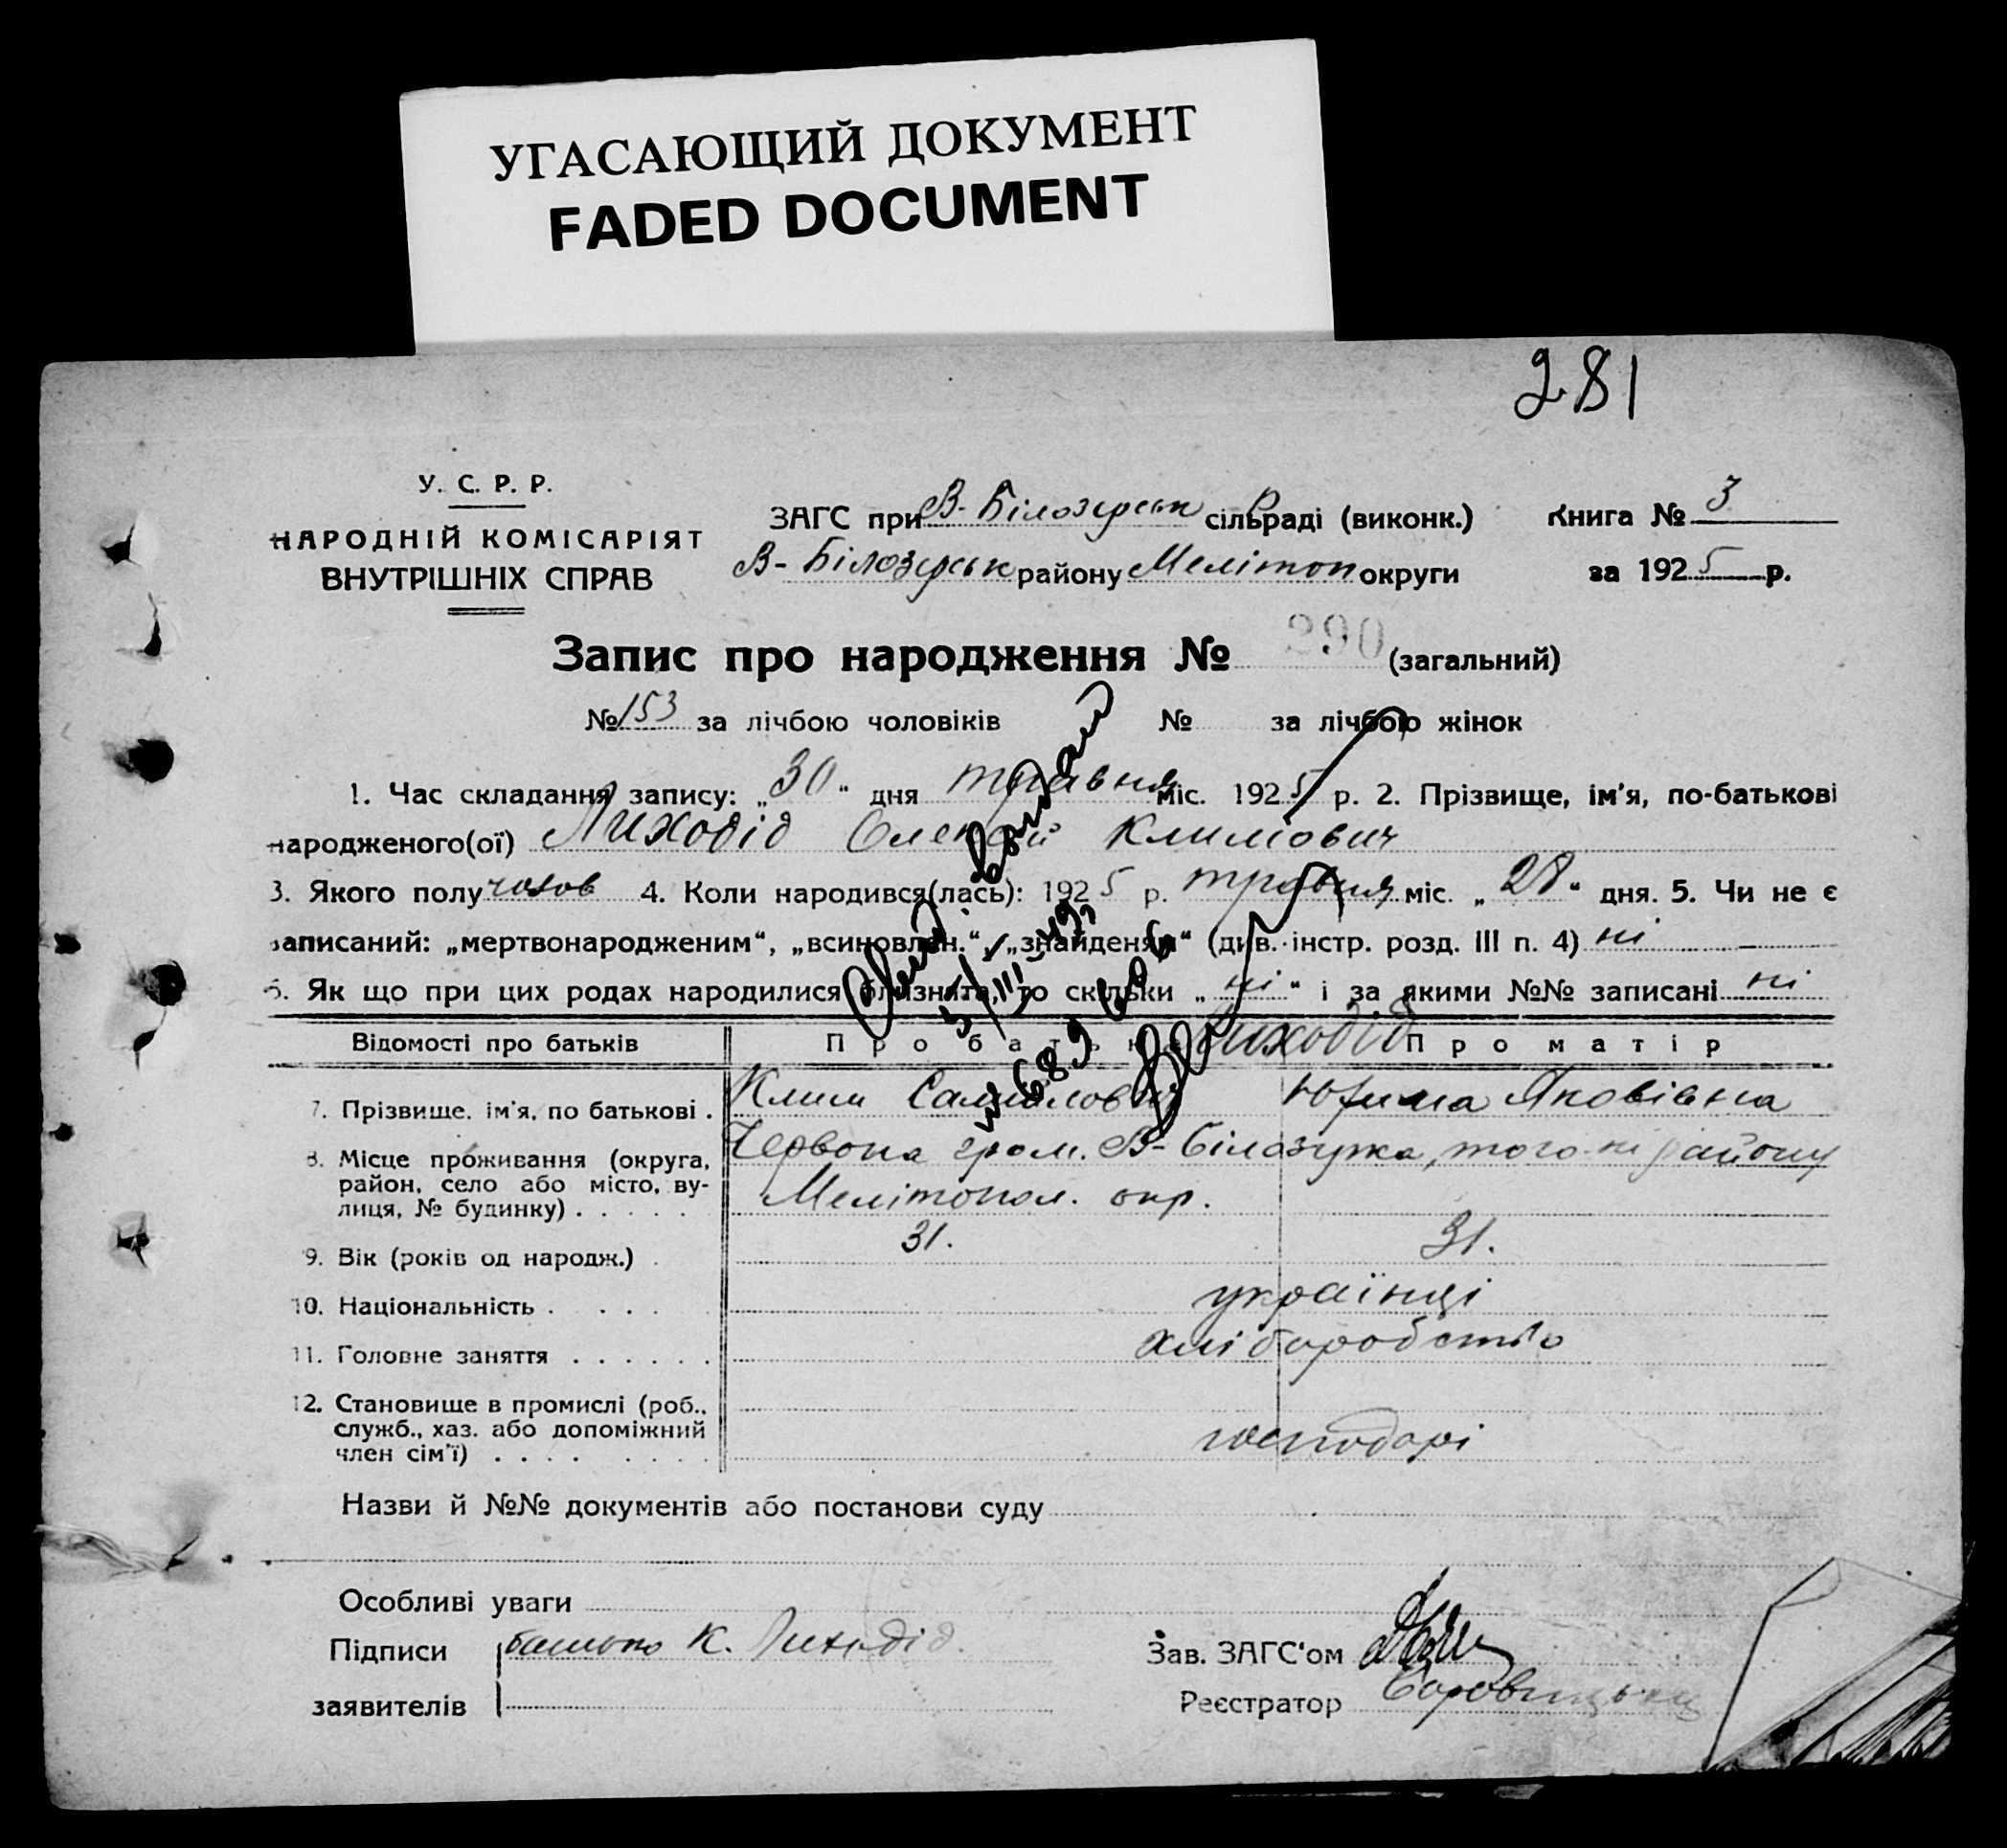 УГАСАЮЩИЙ ДОКУМЕНТ
FADED DOCUMENT
281
У. С. Р. Р.
НАРОДНІЙ КОМІСАРІЯТ
ВНУТРІШНІХ СПРАВ
ЗАГС при В-Білозерськ сільраді (виконк.)
В-Білозерськ району Мелітоп округи
Книга № 3
за 1925 р.
Запис про народження № 290 (загальний)
№ 153 за лічбою чоловіків № за лічбою жінок
1. Час складання запису: „30“ дня травня міс. 1925 р. 2. Прізвище, ім'я, по-батькові
народженого(ої) Лиходід Олексій Климович
3. Якого полу чолов 4. Коли народився(лась): 1925 р. травня міс. „28“ дня. 5. Чи не є
записаний: „мертвонародженим“, „всиновлен.“, „знайденям“ (див. інстр. розд. III п. 4) ні
6. Як що при цих родах народилися близнята, то скільки „ні“ і за якими №№ записані ні
Відомості про батьків Про батька Лиходід Про матір
7. Прізвище, ім'я, по батькові . Клим Самійлович Яковівна
8. Місце проживання (округа, Червона гром. В-Білозерка, того-ж району
район, село або місто, ву- Мелітопол. окр.
лиця, № будинку) . . . . .
9. Вік (років од народж.) . 31. 31.
10. Національність . . . . українці
11. Головне заняття . . . . . . хліборобство
12. Становище в промислі (роб.,
служб., хаз. або допоміжний господарі
член сім'ї) . . . . . . . .
№ 689
Назви й №№ документів або постанови суду
Особливі уваги
Підписи батько К. Лиходід.
заявителів
Зав. ЗАГС'ом
Реєстратор